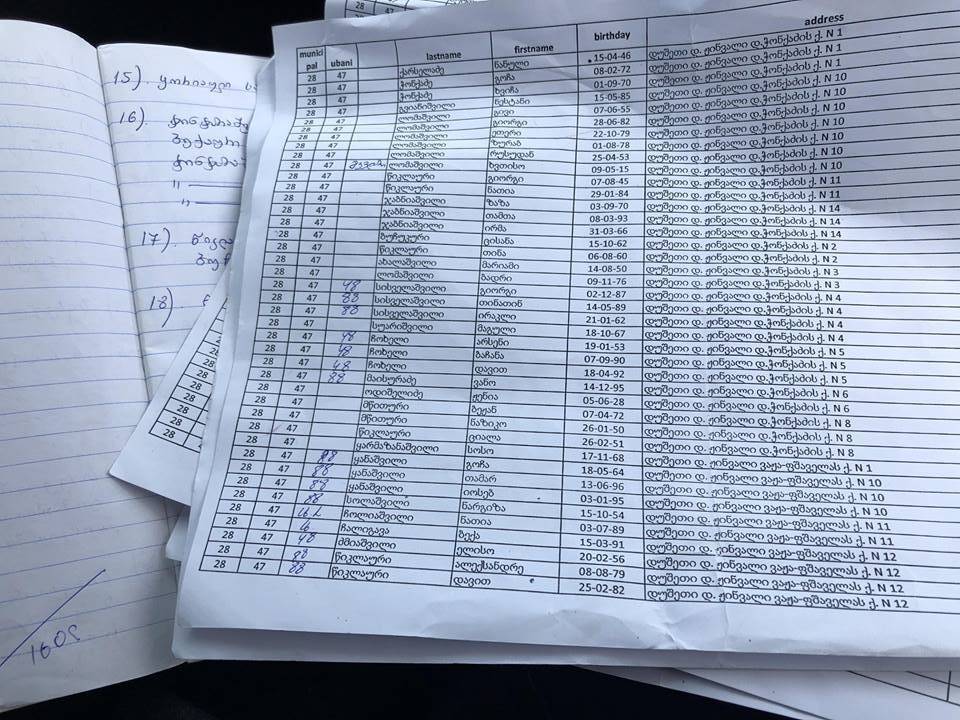 15) ყორიაული
16).
17)
18)
1605
munici pal ubani lastname firstname birthday address
28 47 ქარსელაძე ნანული 15-04-46 დუშეთი დ. ჟინვალი დ.ჭონქაძის ქ. N 1
28 47 ჭონქაძე გოჩა 08-02-72 დუშეთი დ. ჟინვალი დ.ჭონქაძის ქ. N 1
28 47 ჭონქაძე ხვიჩა 01-09-70 დუშეთი დ. ჟინვალი დ.ჭონქაძის ქ. N 1
28 47 გვიანიშვილი ნესტანი 15-05-85 დუშეთი დ. ჟინვალი დ.ჭონქაძის ქ. N 10
28 47 ლომაშვილი გივი 07-06-55 დუშეთი დ. ჟინვალი დ.ჭონქაძის ქ. N 10
28 47 ლომაშვილი გიორგი 28-06-82 დუშეთი დ. ჟინვალი დ.ჭონქაძის ქ. N 10
28 47 ლომაშვილი ეთერი 22-10-79 დუშეთი დ. ჟინვალი დ.ჭონქაძის ქ. N 10
28 47 ლომაშვილი ზურაბ 01-08-78 დუშეთი დ. ჟინვალი დ.ჭონქაძის ქ. N 10
28 47 ლომაშვილი რუსუდან 25-04-53 დუშეთი დ. ჟინვალი დ.ჭონქაძის ქ. N 10
28 47 ლომაშვილი ხვთისო 09-05-15 დუშეთი დ. ჟინვალი დ.ჭონქაძის ქ. N 10
28 47 წიკლაური გიორგი 07-08-45 დუშეთი დ. ჟინვალი დ.ჭონქაძის ქ. N 11
28 47 წიკლაური ნათია 29-01-84 დუშეთი დ. ჟინვალი დ.ჭონქაძის ქ. N 11
28 47 ჯაბნიაშვილი ზაზა 03-09-70 დუშეთი დ. ჟინვალი დ.ჭონქაძის ქ. N 14
28 47 ჯაბნიაშვილი თამთა 08-03-93 დუშეთი დ. ჟინვალი დ.ჭონქაძის ქ. N 14
28 47 ჯაბნიაშვილი ირმა 31-03-66 დუშეთი დ. ჟინვალი დ.ჭონქაძის ქ. N 14
28 47 ბუჩუკური ცისანა 15-10-62 დუშეთი დ. ჟინვალი დ.ჭონქაძის ქ. N 2
28 47 წიკლაური თინა 06-08-60 დუშეთი დ. ჟინვალი დ.ჭონქაძის ქ. N 2
28 47 აბალაშვილი მარიამი 14-08-50 დუშეთი დ. ჟინვალი დ.ჭონქაძის ქ. N 3
28 47 ლომაშვილი ბადრი 09-11-76 დუშეთი დ. ჟინვალი დ.ჭონქაძის ქ. N 3
28 47 48 სისველაშვილი გიორგი 02-12-87 დუშეთი დ. ჟინვალი დ.ჭონქაძის ქ. N 4
28 47 88 სისველაშვილი თინათინ 14-05-89 დუშეთი დ. ჟინვალი დ.ჭონქაძის ქ. N 4
28 47 88 სისველაშვილი ირაკლი 21-01-62 დუშეთი დ. ჟინვალი დ.ჭონქაძის ქ. N 4
28 47 სუარიშვილი მაგული 18-10-67 დუშეთი დ. ჟინვალი დ.ჭონქაძის ქ. N 4
28 47 48 ჩოხელი არსენი 19-01-53 დუშეთი დ. ჟინვალი დ.ჭონქაძის ქ. N 5
28 47 48 ჩოხელი ბაჩანა 07-09-90 დუშეთი დ. ჟინვალი დ.ჭონქაძის ქ. N 5
28 47 48 ჩოხელი დავით 18-04-92 დუშეთი დ. ჟინვალი დ.ჭონქაძის ქ. N 5
28 47 88 მაისურაძე ვანო 14-12-95 დუშეთი დ. ჟინვალი დ.ჭონქაძის ქ. N 6
28 47 ოდიშელიძე ჟენია 05-06-28 დუშეთი დ. ჟინვალი დ.ჭონქაძის ქ. N 6
28 47 მწითური ბეჟან 07-04-72 დუშეთი დ. ჟინვალი დ.ჭონქაძის ქ. N 8
28 47 მწითური ნაზიკო 26-01-50 დუშეთი დ. ჟინვალი დ.ჭონქაძის ქ. N 8
28 47 წიკლაური ციალა 26-02-51 დუშეთი დ. ჟინვალი დ.ჭონქაძის ქ. N 8
28 47 ყარმაზანაშვილი სოსო 17-11-68 დუშეთი დ. ჟინვალი ვაჟა-ფშაველას ქ. N 1
28 47 88 ყანაშვილი გოჩა 18-05-64 დუშეთი დ. ჟინვალი ვაჟა-ფშაველას ქ. N 10
28 47 88 ყანაშვილი თამარ 13-06-96 დუშეთი დ. ჟინვალი ვაჟა-ფშაველას ქ. N 10
28 47 88 ყანაშვილი იოსებ 03-01-95 დუშეთი დ. ჟინვალი ვაჟა-ფშაველას ქ. N 10
28 47 88 სოლაშვილი ნარგიზა 15-10-54 დუშეთი დ. ჟინვალი ვაჟა-ფშაველას ქ. N 11
28 47 ჩოლიაშვილი ნათია 03-07-89 დუშეთი დ. ჟინვალი ვაჟა-ფშაველას ქ. N 11
28 47 ჩალიგავა ბექა 15-03-91 დუშეთი დ. ჟინვალი ვაჟა-ფშაველას ქ. N 12
28 47 48 ძმიაშვილი ელისო 20-02-56 დუშეთი დ. ჟინვალი ვაჟა-ფშაველას ქ. N 12
28 47 88 წიკლაური ალექსანდრე 08-08-79 დუშეთი დ. ჟინვალი ვაჟა-ფშაველას ქ. N 12
28 47 88 წიკლაური დავით 25-02-82 დუშეთი დ. ჟინვალი ვაჟა-ფშაველას ქ. N 12